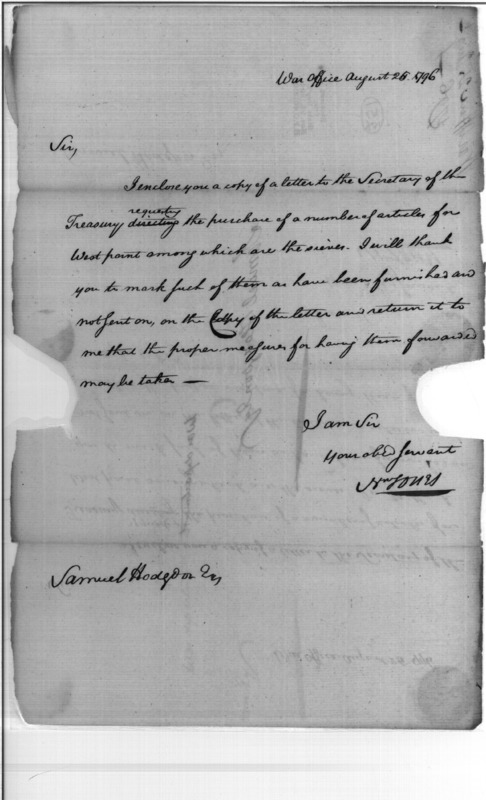 War Office August 26. 1796
Sir,
I enclose you a copy of a letter to the Secretary of th
requestg
Treasury directing the purchase of a number of articles for
West point among which are the sieves. I will thank
you to mark such of them as have been furnished and
not sent on, on the Copy of the letter and return it to
me that the proper measures for having them forwarded
may be taken —
I am Sir
Your obed servant
Jones
Samuel Hodgdon Esq